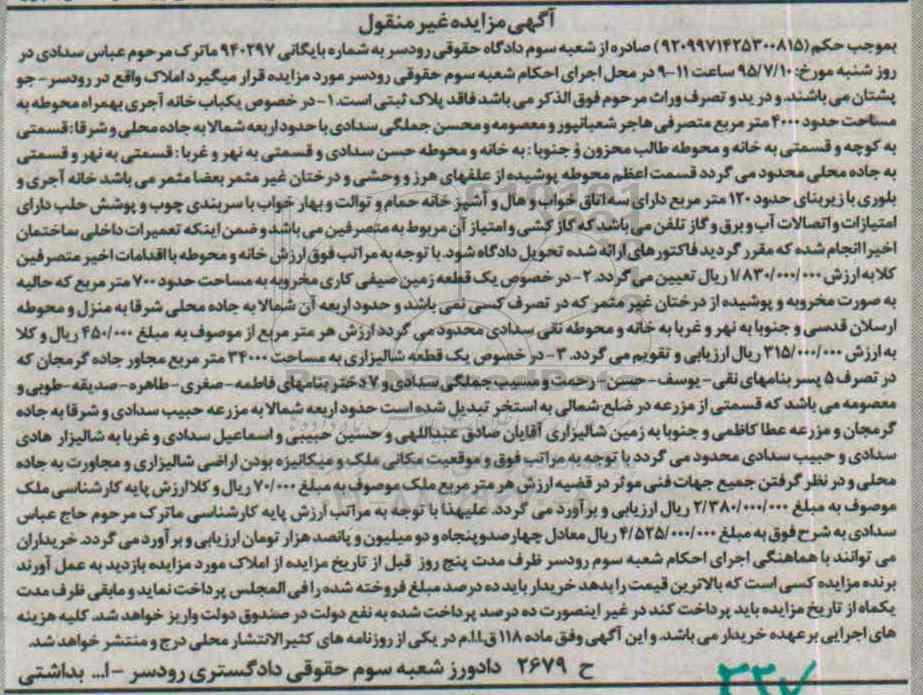 آگهی مزایده غیر منقول
بموجب حکم (۹۲۰۹۹۷۱۴۲۵۳۰۰۸۱۵) صادره از شعبه سوم دادگاه حقوقی رودسر به شماره بایگانی ۹۴۰۲۹۷ ماترک مرحوم عباس سدادی در
روز شنبه مورخ: ۹۵/۷/۱۰ ساعت ۱۱-۹ در محل اجرای احکام شعبه سوم حقوقی رودسر مورد مزایده قرار میگیرد املاک واقع در رودسر- جو
پشتان می باشند. و در ید و تصرف وراث مرحوم فوق الذکر می باشد فاقد پلاک ثبتی است. ۱- در خصوص یکباب خانه آجری بهمراه محوطه به
مساحت حدود ۴۰۰۰ متر مربع متصرفی هاجر شعبانپور و معصومه و محسن جملگی سدادی با حدود اربعه شمالا به جاده محلی و شرقا: قسمتی
به کوچه و قسمتی به خانه و محوطه طالب محزون و جنوبا: به خانه و محوطه حسن سدادی و قسمتی به نهر و غربا: قسمتی به نهر و قسمتی
به جاده محلی محدود می گردد قسمت اعظم محوطه پوشیده از علفهای هرز و وحشی و درختان غیر مثمر بعضا مثمر می باشد خانه آجری و
بلوری با زیربنای حدود ۱۲۰ متر مربع دارای سه اتاق خواب و هال و آشپز خانه حمام و توالت و بهار خواب با سربندی چوب و پوشش حلب دارای
امتیازات و اتصالات آب و برق و گاز تلفن می باشد که گاز کشی و امتیاز آن مربوط به متصرفین می باشد و ضمن اینکه تعمیرات داخلی ساختمان
اخیرا انجام شده که مقرر گردید فاکتورهای ارائه شده تحویل دادگاه شود. با توجه به مراتب فوق ارزش خانه و محوطه با اقدامات اخیر متصرفین
کلا به ارزش ۱/۸۳۰/۰۰۰/۰۰۰ ریال تعیین می گردد. ۲- در خصوص یک قطعه زمین صیفی کاری مخروبه به مساحت حدود ۷۰۰ متر مربع که حالیه
به صورت مخروبه و پوشیده از درختان غیر مثمر که در تصرف کسی نمی باشد و حدود اربعه آن شمالا به جاده محلی شرقا به منزل و محوطه
ارسلان قدسی و جنوبا به نهر و غربا به خانه و محوطه نقی سدادی محدود می گردد ارزش هر متر مربع از موصوف به مبلغ ۴۵۰/۰۰۰ ریال و کلا
به ارزش ۳۱۵/۰۰۰/۰۰۰ ریال ارزیابی و تقویم می گردد. ۳- در خصوص یک قطعه شالیزاری به مساحت ۳۴۰۰۰ متر مربع مجاور جاده گرمجان که
در تصرف ۵ پسر بنامهای نقی- یوسف- حسن- رحمت و مسیب جملگی سدادی و ۷ دختر بنامهای فاطمه- صغری- طاهره- صدیقه- طوبی و
معصومه می باشد که قسمتی از مزرعه در ضلع شمالی به استخر تبدیل شده است حدود اربعه شمالا به مزرعه حبیب سدادی و شرقا به جاده
گرمجان و مزرعه عطا کاظمی و جنوبا به زمین شالیزاری آقایان صادق عبداللهی و حسین حبیبی و اسماعیل سدادی و غربا به شالیزار هادی
سدادی و حبیب سدادی محدود می گردد با توجه به مراتب فوق و موقعیت مکانی ملک و میکانیزه بودن اراضی شالیزاری و مجاورت به جاده
محلی و در نظر گرفتن جمیع جهات فنی موثر در قضیه ارزش هر متر مربع ملک موصوف به مبلغ ۷۰/۰۰۰ ریال و کلا ارزش پایه کارشناسی ملک
موصوف به مبلغ ۲/۳۸۰/۰۰۰/۰۰۰ ریال ارزیابی و برآورد می گردد. علیهذا با توجه به مراتب ارزش پایه کارشناسی ماترک مرحوم حاج عباس
سدادی به شرح فوق به مبلغ ۴/۵۲۵/۰۰۰/۰۰۰ ریال معادل چهارصد و پنجاه و دو میلیون و پانصد هزار تومان ارزیابی و برآورد می گردد. خریداران
می توانند با هماهنگی اجرای احکام شعبه سوم رودسر ظرف مدت پنج روز قبل از تاریخ مزایده از املاک مورد مزایده بازدید به عمل آورند
برنده مزایده کسی است که بالاترین قیمت را بدهد خریدار باید ده درصد مبلغ فروخته شده را فی المجلس پرداخت نماید و مابقی ظرف مدت
یکماه از تاریخ مزایده باید پرداخت کند در غیر اینصورت ده درصد پرداخت شده به نفع دولت در صندوق دولت واریز خواهد شد. کلیه هزینه
های اجرایی بر عهده خریدار می باشد. و این آگهی وفق ماده ۱۱۸ ق.ا.ا.م در یکی از روزنامه های کثیرالانتشار محلی درج و منتشر خواهد شد.
ح ۲۶۷۹ دادورز شعبه سوم حقوقی دادگستری رودسر - ا... بداشتی
۳۳۷